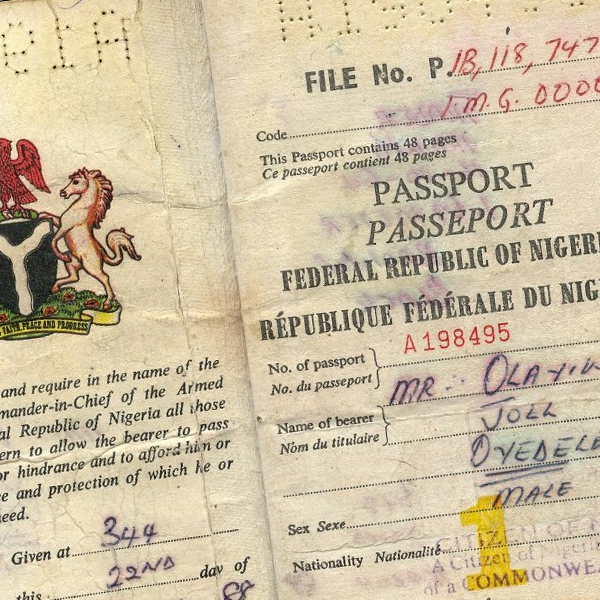 FAITH, PEACE AND PROGRESS
and require in the name of the
mander-in-Chief of the Armed
al Republic of Nigeria all those
ern to allow the bearer to pass
or hindrance and to afford him or
ce and protection of which he or
need.
Given at 344
this 22ND day of
88
FILE No. P. 1B, 118, 747
I.M.G. 0000
Code
This Passport contains 48 pages
Ce passeport contient 48 pages
PASSPORT
PASSEPORT
FEDERAL REPUBLIC OF NIGERI
RÉPUBLIQUE FÉDÉRALE DU NIG
No. of passport
No. du passeport
A198495
Name of bearer
Nom du titulaire
MR. OLAYIN
JOLL
OYEDELE
Sex Sexe MALE
Nationality Nationalité
A Citizen of Nigeria
of a COMMONWEA
1